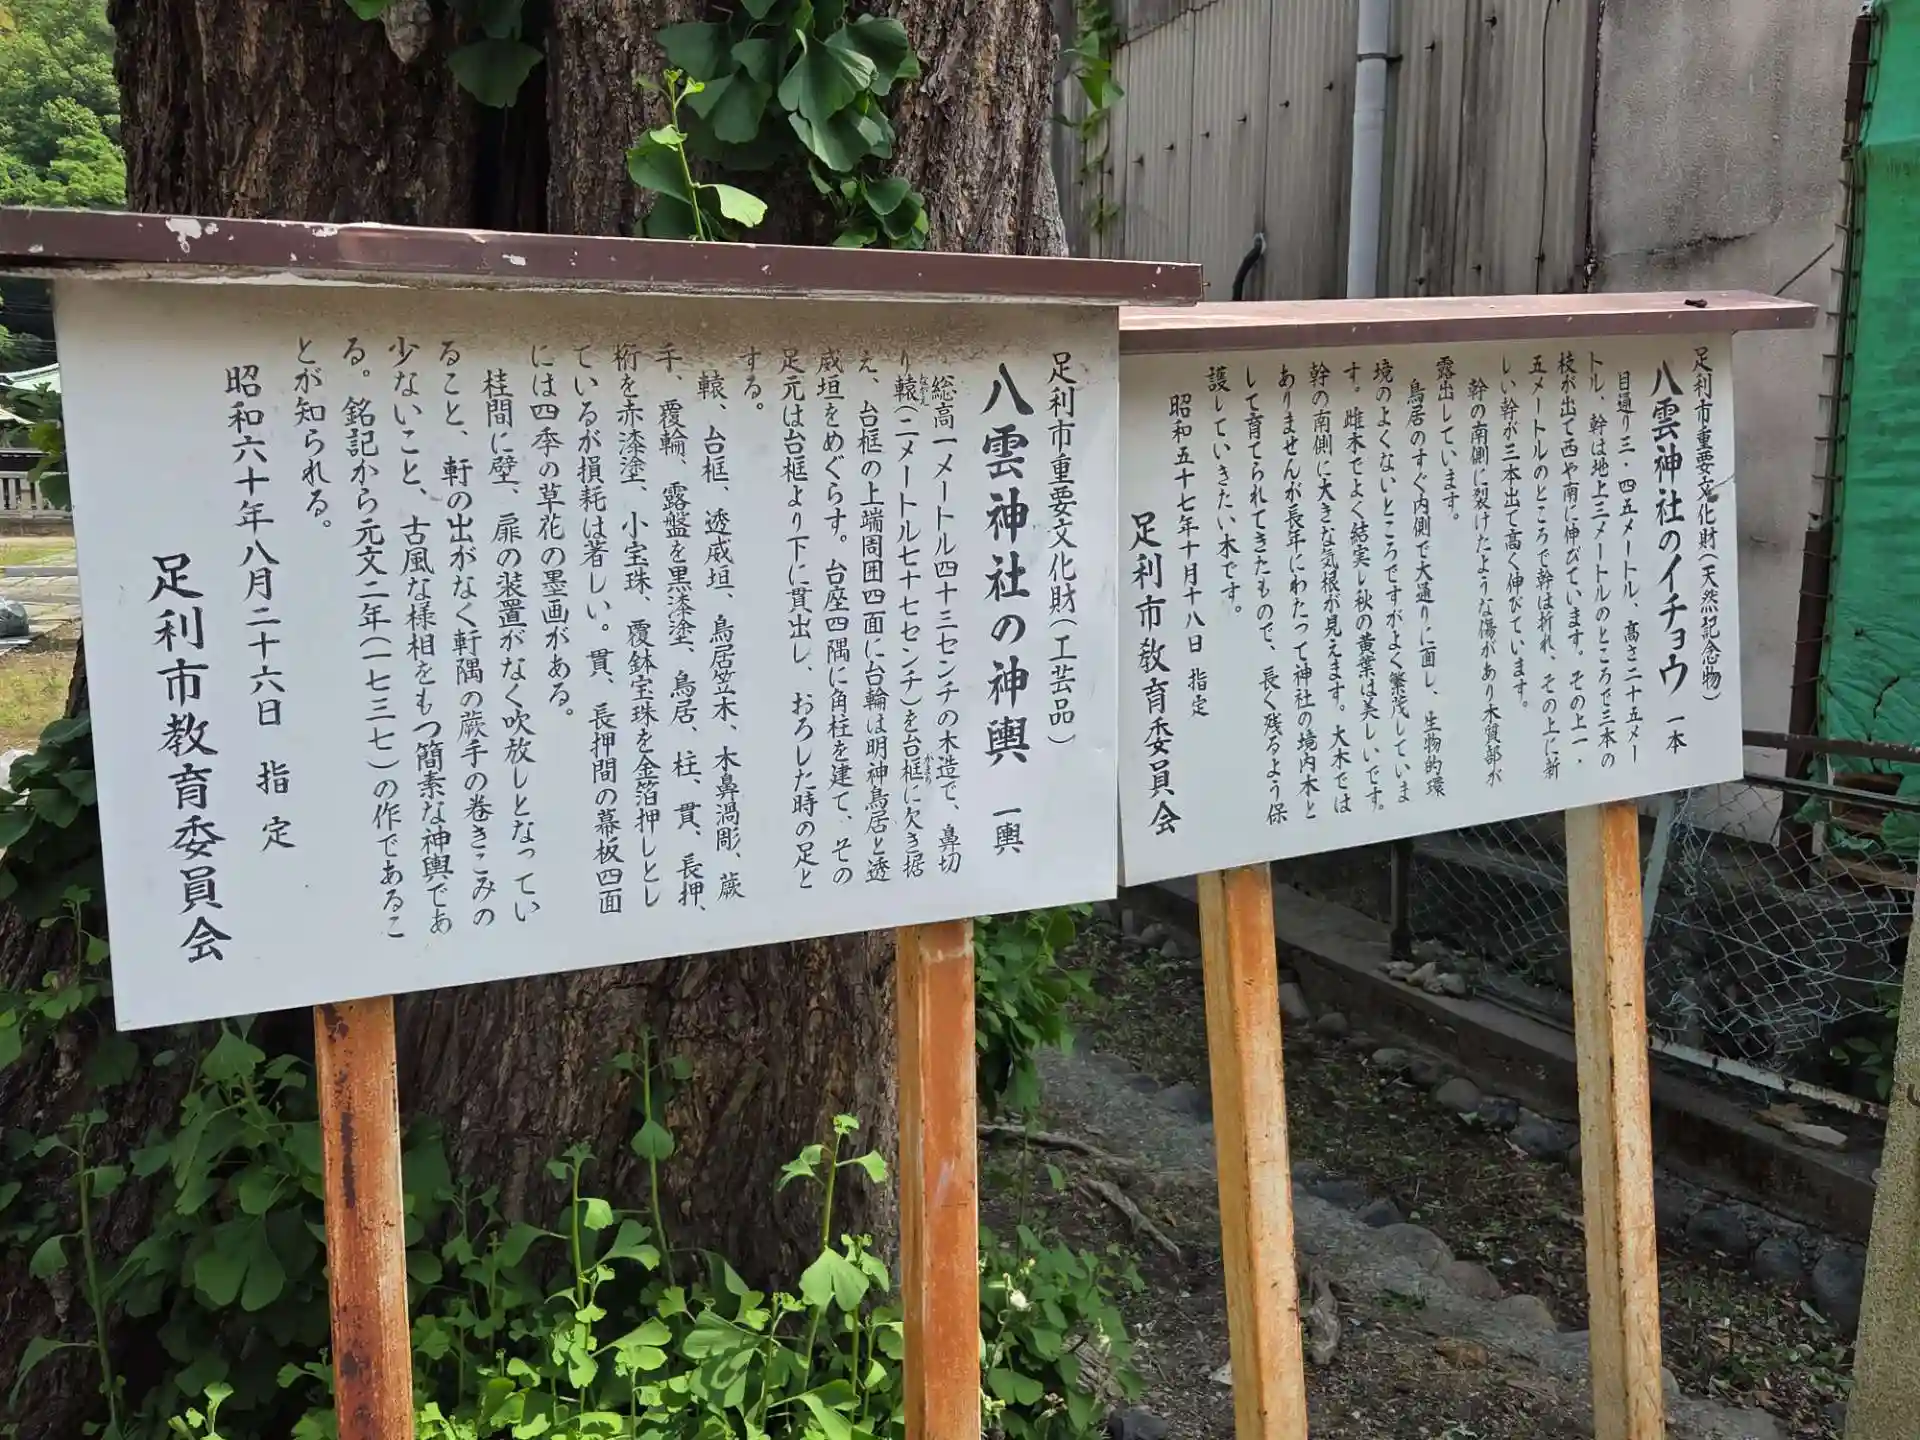 足利市重要文化財(工芸品)
八雲神社の神輿 一輿
総高一メートル四十三センチの木造で、鼻切
り轅(二メートル七十七センチ)を台框に欠き据
ながえ
かまち
え、台框の上端周囲四面に台輪は明神鳥居と透
威垣をめぐらす。台座四隅に角柱を建て、その
足元は台框より下に貫出し、おろした時の足と
する。
轅、台框、透威垣、鳥居笠木、木鼻渦彫、蕨
手、覆輪、露盤を黒漆塗、鳥居、柱、貫、長押、
桁を赤漆塗、小宝珠、覆鉢宝珠を金箔押しとし
ているが損耗は著しい。貫、長押間の幕板四面
には四季の草花の墨画がある。
桂間に壁、扉の装置がなく吹放しとなってい
ること、軒の出がなく軒隅の蕨手の巻きこみの
少ないこと、古風な様相をもつ簡素な神輿であ
る。銘記から元文二年(一七三七)の作であるこ
とが知られる。
昭和六十年八月二十六日 指定
足利市教育委員会
足利市重要文化財(天然記念物)
八雲神社のイチョウ 一本
目通り三・四五メートル、高さ二十五メー
トル、幹は地上三メートルのところで三本の
枝が出て西や南に伸びています。その上一・
五メートルのところで幹は折れ、その上に新
しい幹が三本出て高く伸びています。
幹の南側に裂けたような傷があり木質部が
露出しています。
鳥居のすぐ内側で大通りに面し、生物的環
境のよくないところですがよく繁茂していま
す。雌木でよく結実し秋の黄葉は美しいです。
幹の南側に大きな気根が見えます。大木では
ありませんが長年にわたって神社の境内木と
して育てられてきたもので、長く残るよう保
護していきたい木です。
昭和五十七年十月十八日 指定
足利市教育委員会